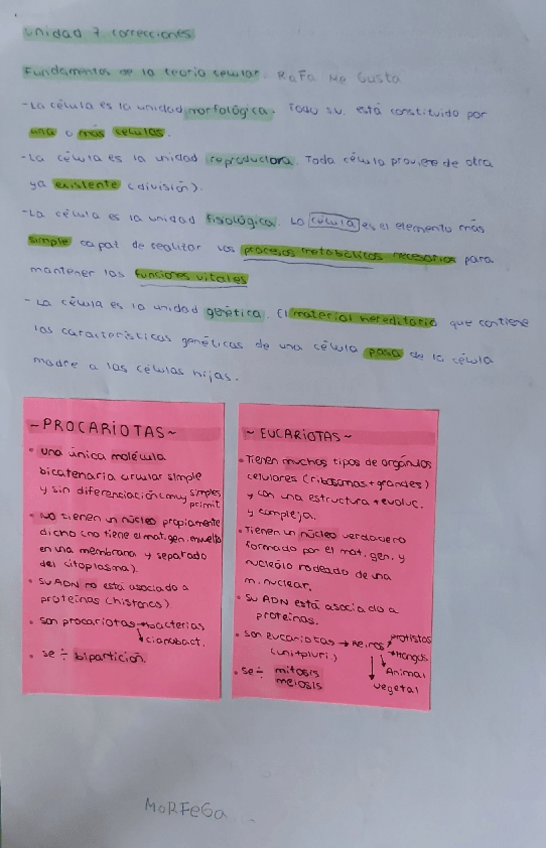 Unidad 7 correcciones
Fundamentos de la teoría celular. RaFa Me Gusta
-La célula es la unidad morfológica. Todo s.v. está constituido por
una o más células.
-La célula es la unidad reproductora. Toda célula proviene de otra
ya existente (división).
-La célula es la unidad fisiológica. La célula es el elemento más
simple capaz de realizar los procesos metabólicos necesarios para
mantener las funciones vitales
- La célula es la unidad genética. El material hereditario que contiene
las características genéticas de una célula pasa de la célula
madre a las células hijas.
~PROCARIOTAS~
• una única molécula
bicatenaria circular simple
y sin diferenciación (muy simples
primit
• No tienen un núcleo propiamente
dicho (no tiene el mat. gen. envuelto
en una membrana y separado
del citoplasma).
• su ADN no está asociado a
proteínas (histonas)
• son procariotas → bacterias
cianobact.
• se ÷ bipartición.
~ EUCARIOTAS~
• Tienen muchos tipos de orgánulos
celulares (ribosomas + grandes)
y con una estructura + evoluc.
y compleja.
• Tienen un núcleo verdadero
formado por el mat. gen. y
nucléolo rodeado de una
m. nuclear.
• su ADN está asociado a
proteínas.
• son eucariotas → Reinos protistos
(uni + pluri.) Hongos
Animal
vegetal
• se ÷ mitosis
meiosis
MoRFeGa